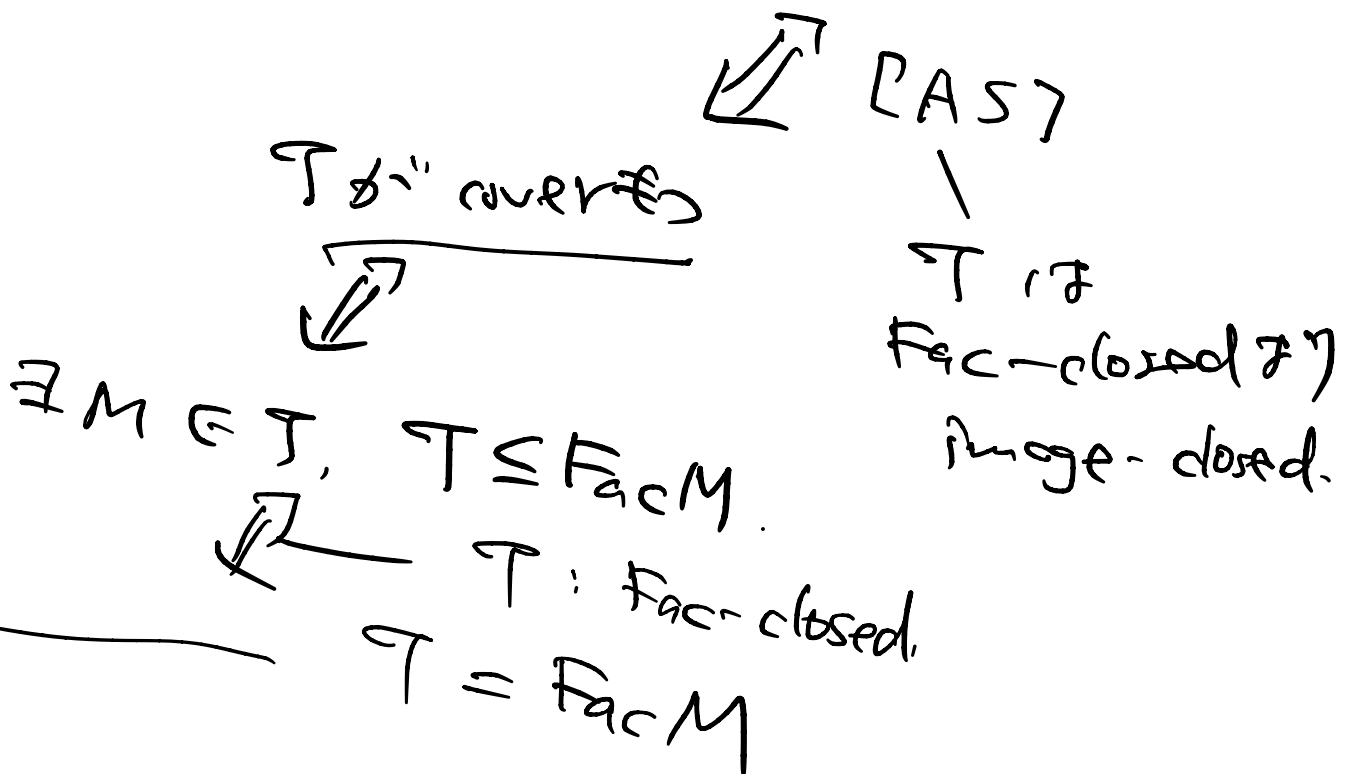 ⇔ [AS]
T が cover をもつ
T は
Fac-closed より
image-closed.
⇔
∃M ∈ T, T ⊆ Fac M.
⇔ T : Fac-closed.
T = Fac M